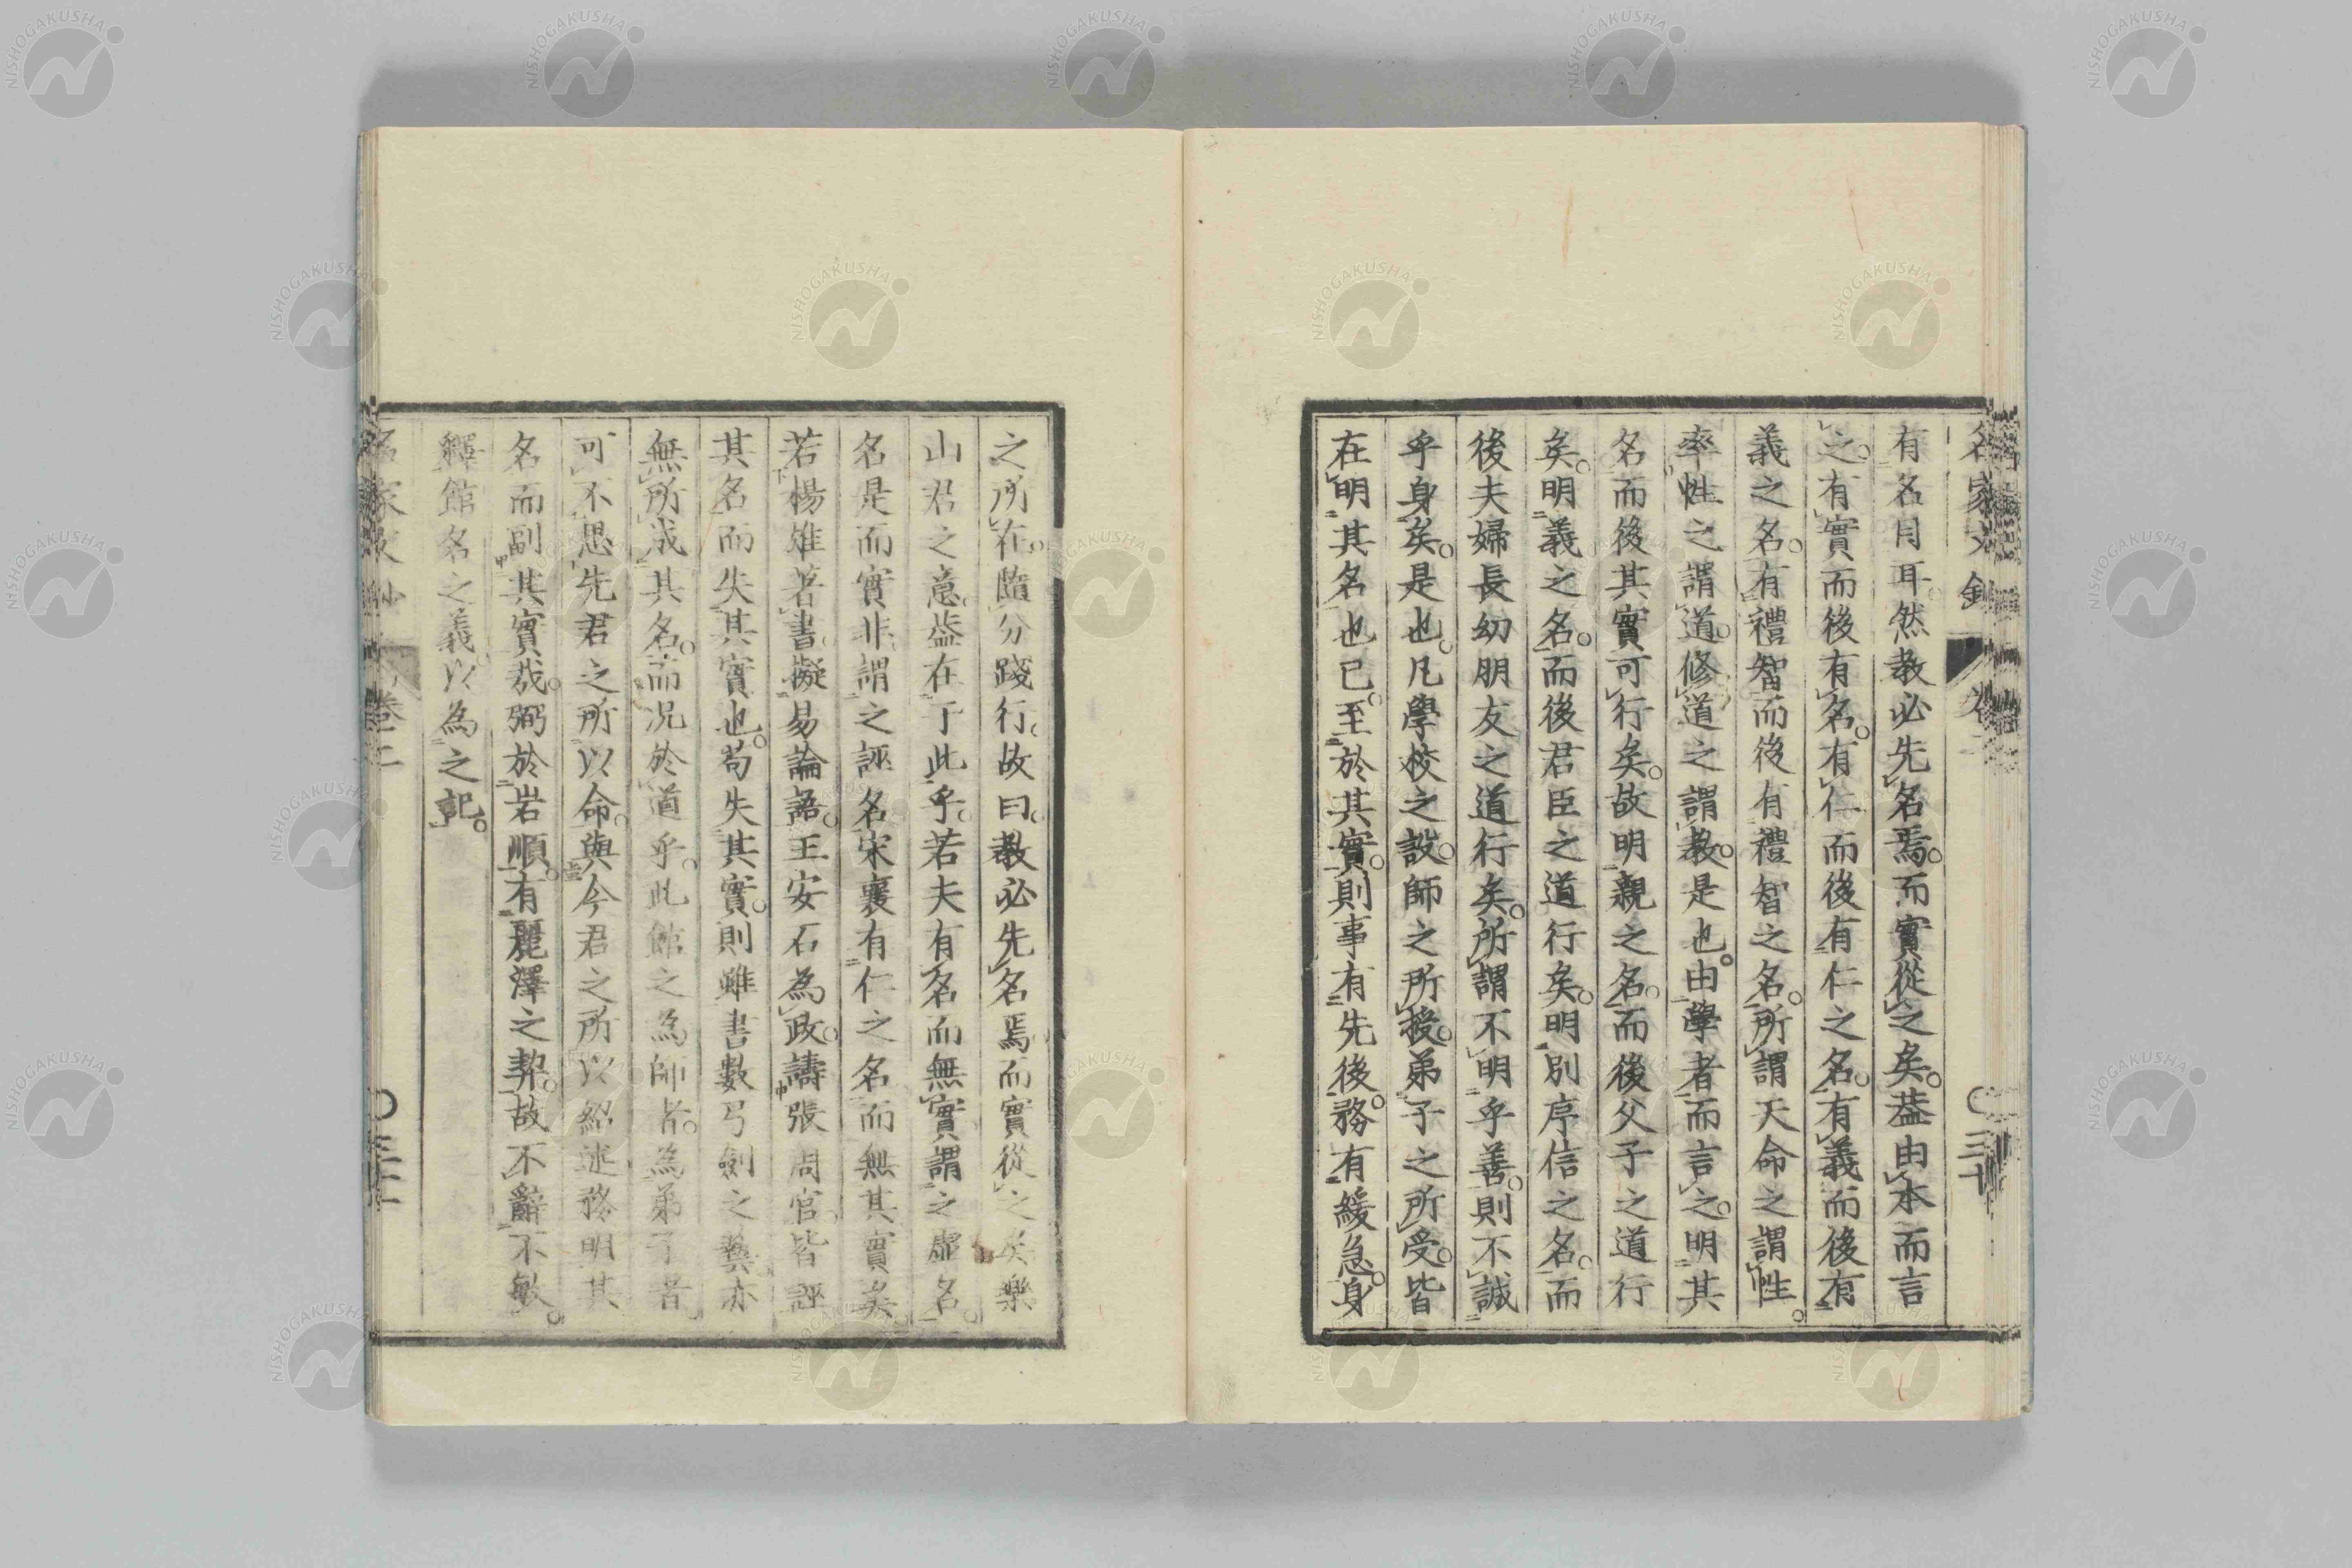 有名目耳。然教必先名焉。而實從之矣。蓋由本而言
之。有實而後有名。有仁而後有仁之名。有義而後有
義之名。有禮智而後有禮智之名。所謂天命之謂性。
率性之謂道。修道之謂教。是也。由學者而言之。明其
名而後其實可行矣。故明親之名。而後父子之道行
矣。明義之名。而後君臣之道行矣。明別序信之名。而
後夫婦長幼朋友之道行矣。所謂不明乎善。則不誠
乎身矣。是也。凡學校之設。師之所授。弟子之所受。皆
在明其名也已。至於其實。則事有先後。務有緩急。身
之所在。隨分踐行。故曰。教必先名焉。而實從之矣樂
山君之意。蓋在于此乎。若夫有名而無實謂之虛名。
名是而實非。謂之誣名。宋襄有仁之名而無其實矣
若楊雄著書。擬易論語。王安石為政。譸張周官。皆誣
其名而失其實也。苟失其實。則雖書數弓劍之藝亦
無所成其名。而況於道乎。此館之為師者。為弟子者
可不思先君之所以命。與今君之所以紹述務明其
名而副其實哉。弼於岩順。有麗澤之契。故不辭不敏。
釋館名之義。以為之記。
名家文鈔
卷二
三十
NISHOGAKUSHA